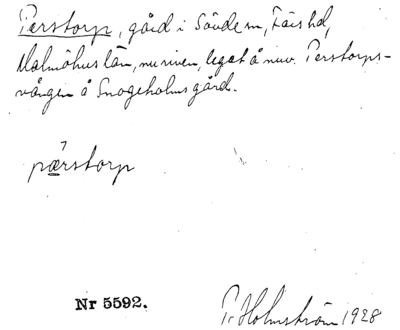 Perstorp, gård i Sövde sn, Färs hd,
Malmöhus län, nu riven, legat å nuv. Perstorps-
vången å Snogeholms gård.
pærstorp
Nr 5592.
P. Holmström 1928